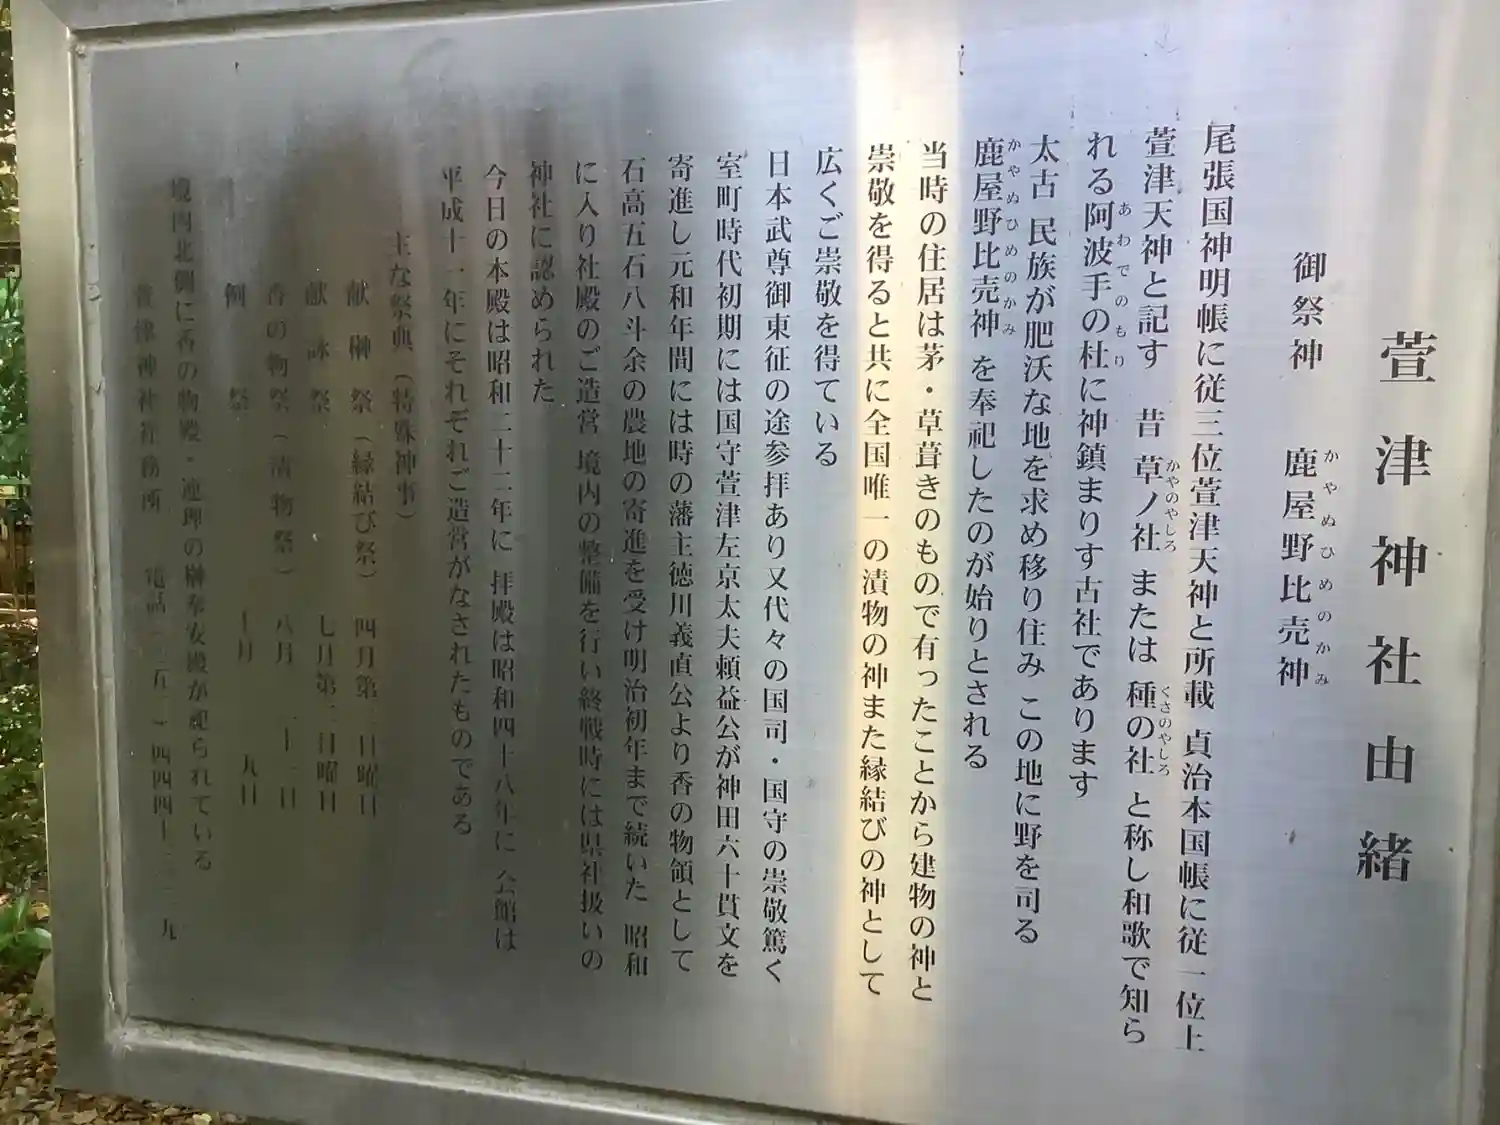 萱津神社由緒
御祭神 鹿屋野比売神
かやぬひめのかみ
尾張国神明帳に従三位萱津天神と所載 貞治本国帳に従一位上
萱津天神と記す 昔 草ノ社 または 種の社 と称し和歌で知ら
かやのやしろ くさのやしろ
れる阿波手の杜に神鎮まりす古社であります
あわでのもり
太古 民族が肥沃な地を求め移り住み この地に野を司る
鹿屋野比売神 を奉祀したのが始りとされる
かやぬひめのかみ
当時の住居は茅・草葺きのもので有ったことから建物の神と
崇敬を得ると共に全国唯一の漬物の神また縁結びの神として
広くご崇敬を得ている
日本武尊御東征の途参拝あり又代々の国司・国守の崇敬篤く
室町時代初期には国守萱津左京太夫頼益公が神田六十貫文を
寄進し元和年間には時の藩主徳川義直公より香の物領として
石高五石八斗余の農地の寄進を受け明治初年まで続いた 昭和
に入り社殿のご造営 境内の整備を行い終戦時には県社扱いの
神社に認められた
今日の本殿は昭和二十二年に 拝殿は昭和四十八年に 公館は
平成十一年にそれぞれご造営がなされたものである
主な祭典（特殊神事）
献榊祭（縁結び祭） 四月第 日曜日
献詠祭 七月第 日曜日
香の物祭（漬物祭） 八月二十一日
例祭 十月 九日
境内北側に香の物殿・連理の榊奉安殿が祀られている
萱津神社社務所 電話